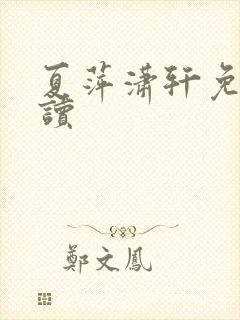 夏萍潇轩免
讀
鄭文鳳